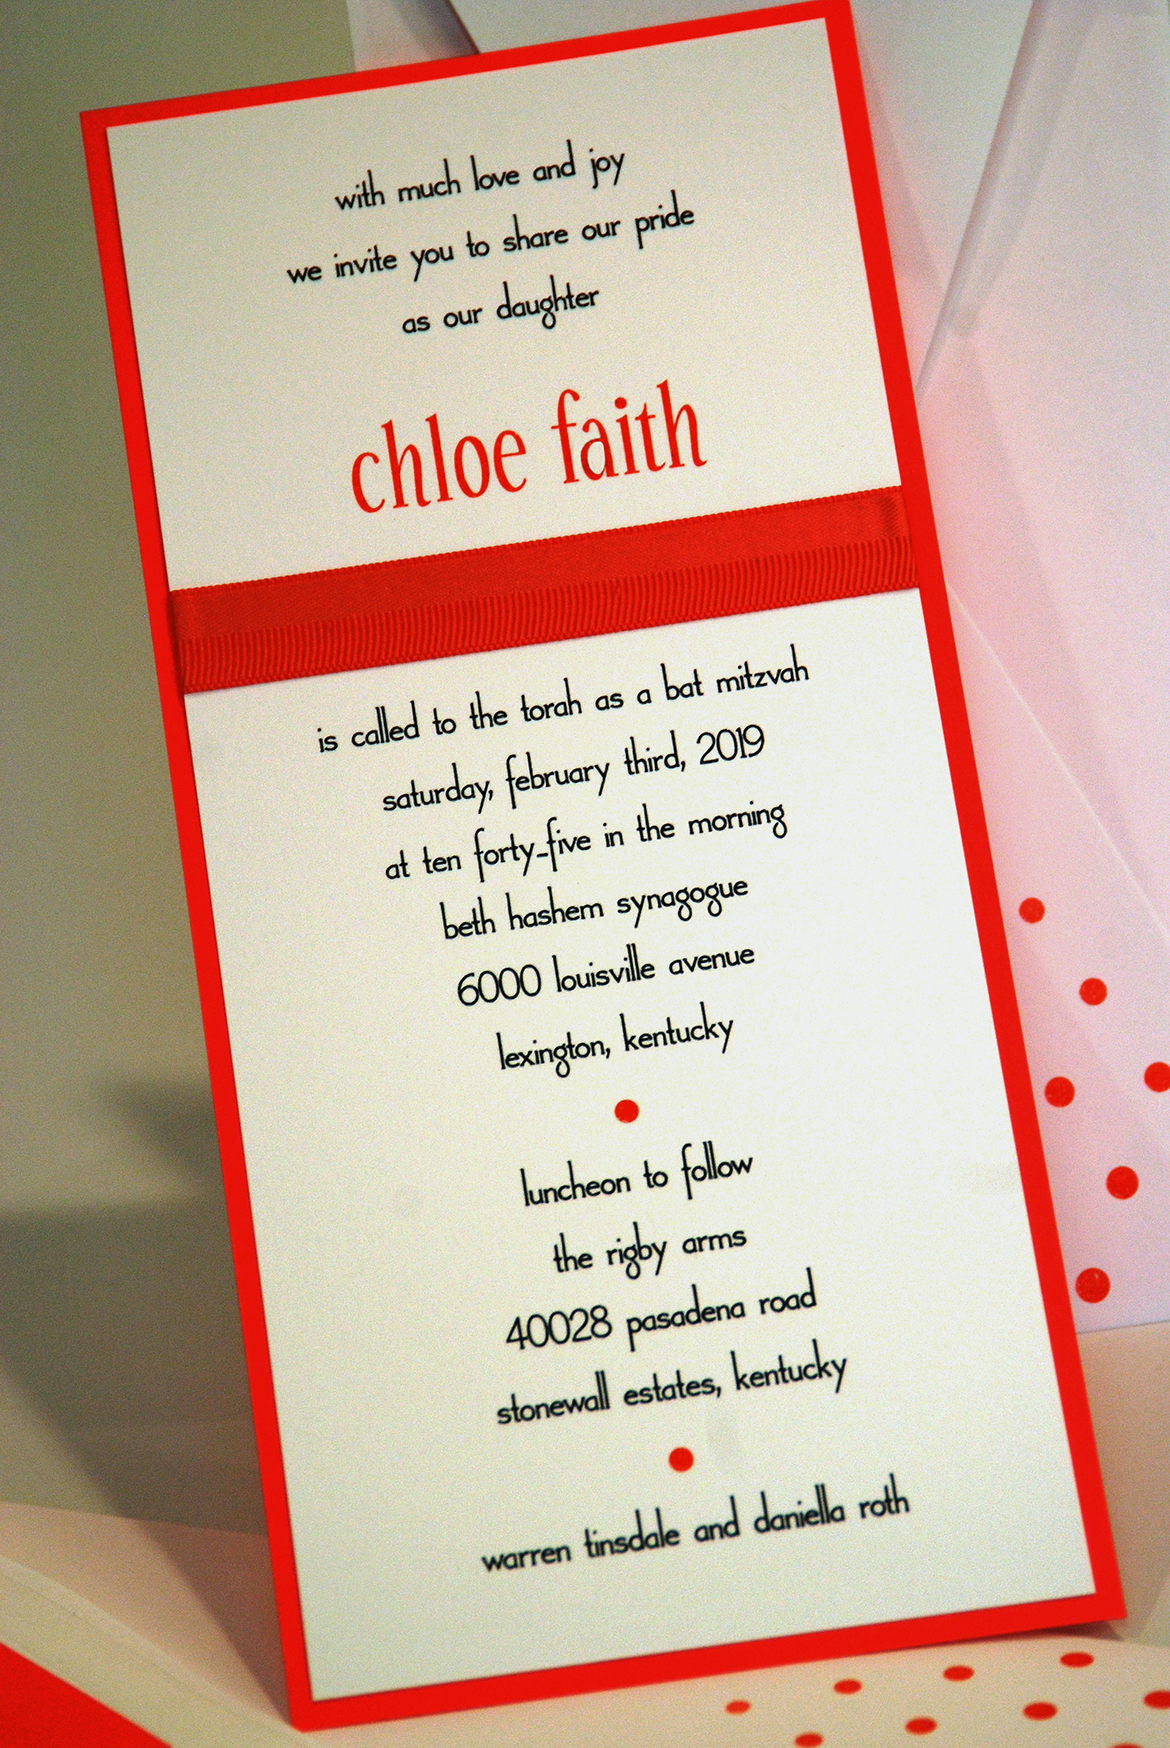 with much love and joy
we invite you to share our pride
as our daughter
chloe faith
is called to the torah as a bat mitzvah
saturday, february third, 2019
at ten forty-five in the morning
beth hashem synagogue
6000 louisville avenue
lexington, kentucky
luncheon to follow
the rigby arms
40028 pasadena road
stonewall estates, kentucky
warren tinsdale and daniella roth